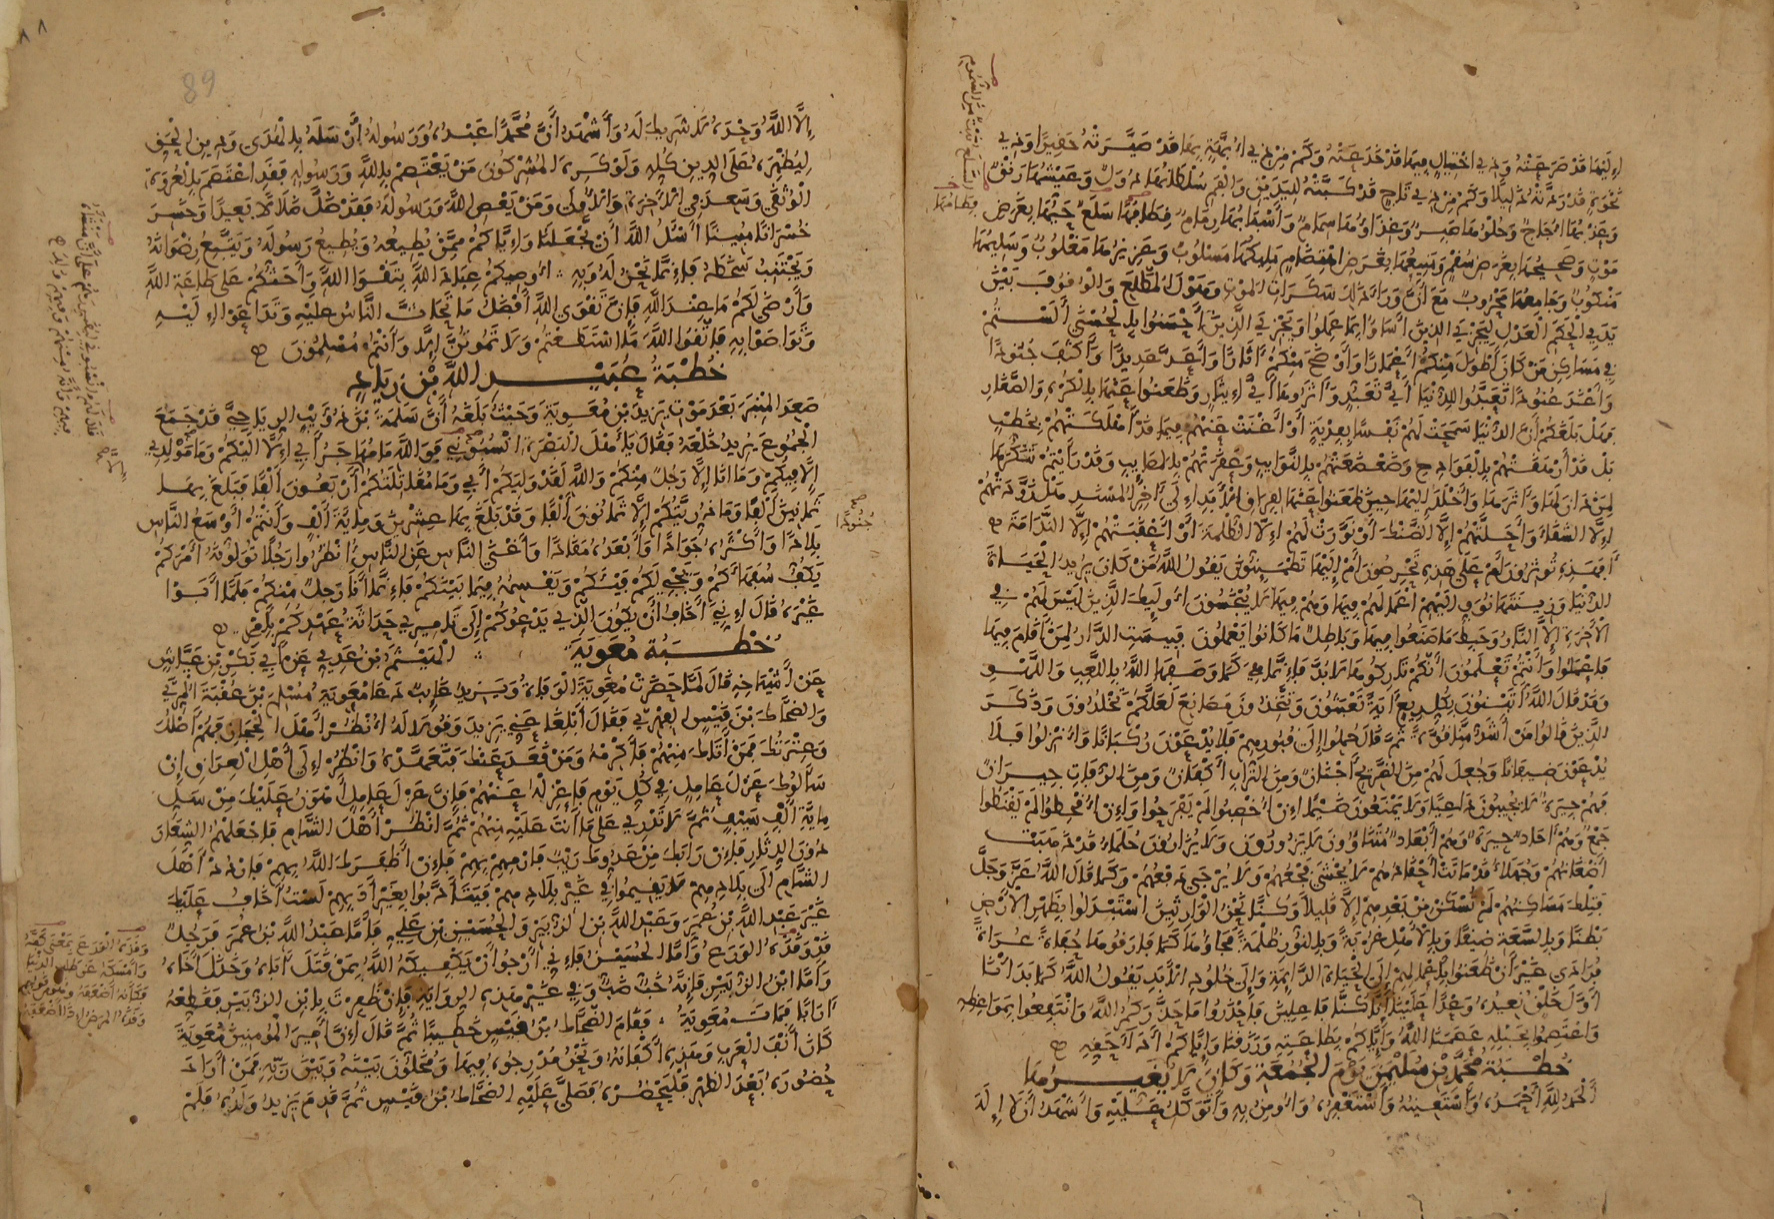 إليها قد صرعته وذي اختيال فيها قد خدعته وكم من ذي أبهة بها قد صيرته حقيرا وذي
نخوة قد ردته ذليلا وكم من ذي تاج قد كبته لليدين والفم سلطانها دول وعيشها رنق
وعذبها أجاج وحلوها صبر وغذاؤها سمام وأسبابها رمام قطافها سلع حيها بعرض
موت وصحيحها بعرض سقم ومنيعها بعرض اهتضام مليكها مسلوب وعزيزها مغلوب وسليمها
منكوب وجامعها محروب مع أن وراء ذلك سكرات الموت وهول المطلع والوقوف بين
يدي الحكم العدل ليجزي الذين أساءوا بما عملوا ويجزي الذين أحسنوا بالحسنى ألستم
في مساكن من كان أطول منكم أعمارا وأوضح منكم آثارا وأعد عديدا وأكثف جنودا
وأعند عنودا تعبدوا للدنيا أي تعبد وآثروها أي إيثار وظعنوا عنها بالكره والصغار
فهل بلغكم أن الدنيا سمحت لهم نفسا بفدية أو أغنت عنهم فيما قد أهلكتهم بخطب
بل قد أرهقتهم بالفوادح وضعضعتهم بالنوائب وعقرتهم بالمصائب وقد رأيتم تنكرها
لمن دان لها وآثرها وأخلد إليها حين ظعنوا عنها لفراق الأبد إلى آخر المسند هل زودتهم
إلا الشقاء وأحلتهم إلا الضنك أو نورت لهم إلا الظلمة أو أعقبتهم إلا الندامة
أفهذه تؤثرون أم على هذه تحرصون أم إليها تطمئنون يقول الله من كان يريد الحياة
الدنيا وزينتها نوف إليهم أعمالهم فيها وهم فيها لا يبخسون أولئك الذين ليس لهم في
الآخرة إلا النار وحبط ما صنعوا فيها وباطل ما كانوا يعملون فبئست الدار لمن أقام فيها
فاعملوا وأنتم تعلمون أنكم تاركوها لا بد فإنما هي كما وصفها الله باللعب واللهو
وقد قال الله أتبنون بكل ريع آية تعبثون وتتخذون مصانع لعلكم تخلدون وذكر
الذين قالوا من أشد منا قوة ثم قال حملوا إلى قبورهم فلا يدعون ركبانا وأنزلوا فلا
يدعون ضيفانا وجعل لهم من الضريح أجنان ومن التراب أكفان ومن الرفات جيران
فهم جيرة لا يجيبون داعيا ولا يمنعون ضيما إن أخصبوا لم يفرحوا وإن أقحطوا لم يقنطوا
جمع وهم آحاد جيرة وهم أبعاد متناؤون لا يزورون ولا يزارون حلماء قد ذهبت
أضغانهم وجهلاء قد ماتت أحقادهم لا يخشى فجعهم ولا يرجى دفعهم وكما قال الله عز وجل
فتلك مساكنهم لم تسكن من بعدهم إلا قليلا وكنا نحن الوارثين استبدلوا بظهر الأرض
بطنا وبالسعة ضيقا وبالأهل غربة وبالنور ظلمة فجاءوها كما فارقوها حفاة عراة
فرادى غير أن ظعنوا بأعمالهم إلى الحياة الدائمة وإلى خلود الأبد يقول الله كما بدأنا
أول خلق نعيده وعدا علينا إنا كنا فاعلين فاحذروا ما حذركم الله وانتفعوا بمواعظه
واعتصموا بحبله عصمنا الله وإياكم بطاعته ورزقنا وإياكم أداء حقه
خطبة محمد بن سليمن يوم الجمعة وكان لا يغيرها
الحمد لله أحمده وأستعينه وأستغفره وأؤمن به وأتوكل عليه وأشهد أن لا إله
قطافها
89
إلا الله وحده لا شريك له وأشهد أن محمدا عبده ورسوله أرسله بالهدى ودين الحق
ليظهره على الدين كله ولو كره المشركون من يعتصم بالله ورسوله فقد اعتصم بالعروة
الوثقى وسعد في الآخرة والأولى ومن يعص الله ورسوله فقد ضل ضلالا بعيدا وخسر
خسرانا مبينا أسل الله أن يجعلنا وإياكم ممن يطيعه ويطيع رسوله ويتبع رضوانه
ويجتنب سخطه فإنما نحن له وبه أوصيكم عباد الله بتقوا الله وأحثكم على طاعة الله
وأرضى لكم ما عند الله فإن تقوى الله أفضل ما تحاث الناس عليه وتداعوا إليه
وتواصوا به فاتقوا الله ما استطعتم ولا تموتن إلا وأنتم مسلمون
خطبة عبيد الله بن زياد
صعد المنبر بعد موت يزيد بن معوية وحيث بلغه أن سلمة بن ذؤيب الرياحي قد جمع
الجموع يريد خلعه فقال يا أهل البصرة انسبوني فوالله ما مهاجر أبي إلا إليكم وما مولدي
إلا فيكم وما أنا إلا رجل منكم والله لقد وليكم أبي وما مقاتلتكم إلا أربعون ألفا فبلغ بها
ثمانين ألفا وما ذريتكم إلا ثمانون ألفا وقد بلغ بها عشرين ومائة ألف وأنتم أوسع الناس
بلادا وأكثره جوادا وأبعده مقادا وأغنى الناس عن الناس انظروا رجلا تولونه أمركم
يكف سفهاءكم ويجبي لكم فيئكم ويقسمه فيما بينكم فإنما أنا رجل منكم فلما أبوا
غيره قال إني أخاف أن يكون الذي يدعوكم إلى تأميري حداثة عهدكم بأمري
خطبة معوية الهيثم بن عدي عن أبي بكر بن عياش
عن أشياخه قال لما حضرت معوية الوفاة ويزيد غائب دعا معوية مسلم بن عقبة المري
والضحاك بن قيس الفهري فقال أبلغا عني يزيد وقولا له انظر أهل الحجاز فهم أصلك
وعترتك فمن أتاك منهم فأكرمه ومن قعد عنك فتعهده وانظر إلى أهل العراق فإن
سألوك عزل عامل في كل يوم فاعزله عنهم فإن عزل عامل أهون عليك من سل
مائة ألف سيف ثم لا تدري على ما أنت عليه منهم ثم انظر أهل الشام فاجعلهم الشعار
دون الدثار فإن رابك من عدوك ريب فارمهم بهم فإن أظفرك الله بهم فاردد أهل
الشام إلى بلادهم لا يقيموا في غير بلادهم فيتأدبوا بغير أدبهم لست أخاف عليك
غير عبد الله بن عمر وعبد الله بن الزبير والحسين بن علي فأما عبد الله بن عمر فرجل
قد وقذه الورع وأما الحسين فإني أرجو أن يكفيكه الله بمن قتل أباه وخذل أخاه
وأما ابن الزبير فإنه خب ضب وفي غير هذه الرواية فإن ظفرت بابن الزبير فقطعه
آرابا فمات معوية فقام الضحاك بن قيس خطيبا ثم قال إن أمير المؤمنين معوية
كان أنف العرب وهذه أكفانه ونحن مدرجوه فيها ومخلون بينه وبين ربه فمن أراد
حضوره بعد الظهر فليحضره فصلى عليه الضحاك بن قيس ثم قدم يزيد ولده فلم
جنودا